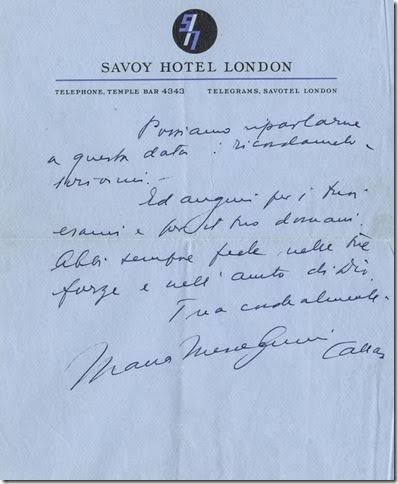 SAVOY HOTEL LONDON
TELEPHONE, TEMPLE BAR 4343 TELEGRAMS, SAVOTEL LONDON
Possiamo riparlarne
a questa data : ricordamelo -
scrivimi. -
Ed auguri per i tuoi
esami e per il tuo domani.
Abbi sempre fede nelle tue
forze e nell'aiuto di Dio.
Tua cordialmente -
Maria Meneghini Callas